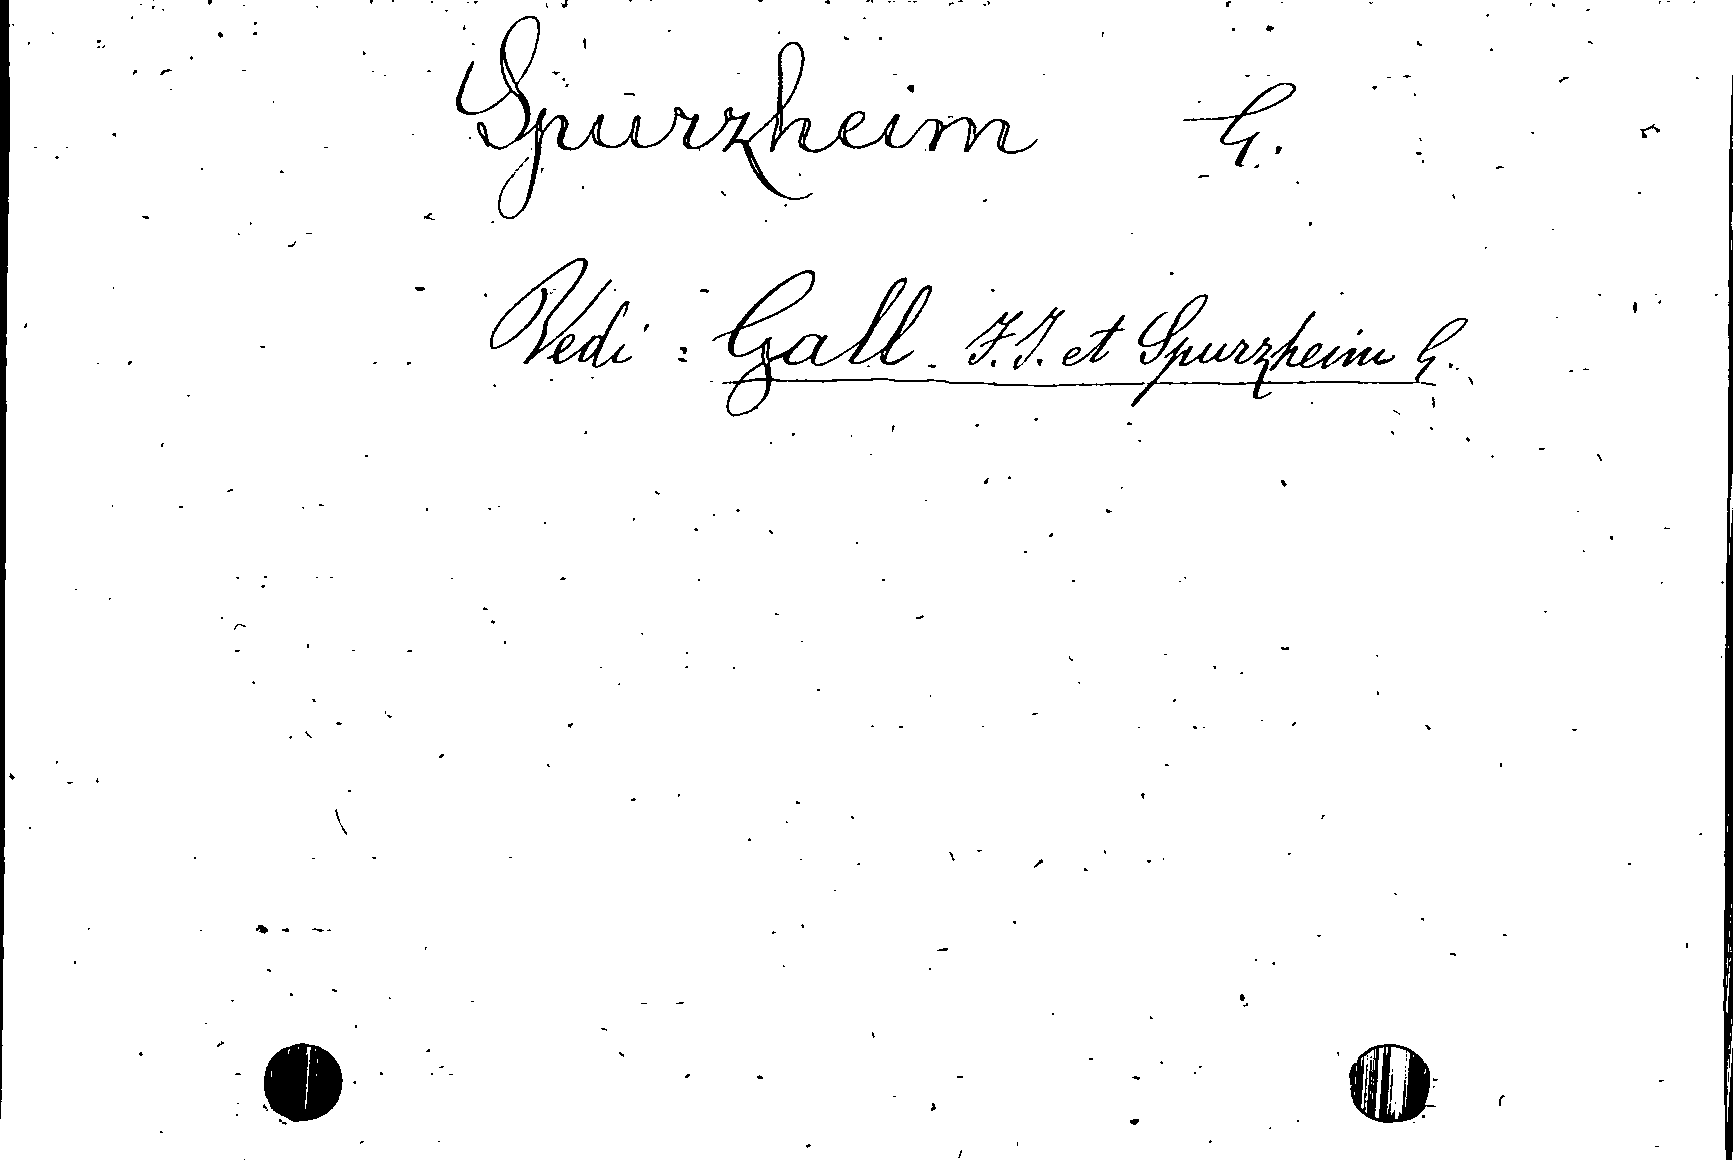 Spurzheim G.
Vedi: Gall. F. J. et Spurzheim G.